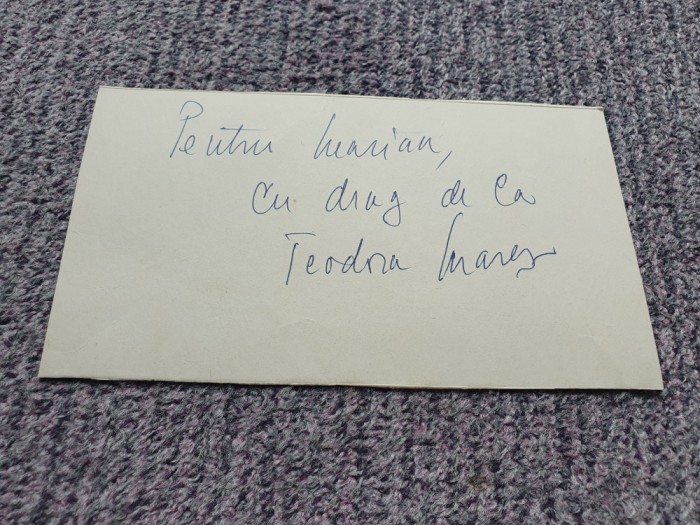 Pentru Marian,
cu drag de la
Teodora Mareș